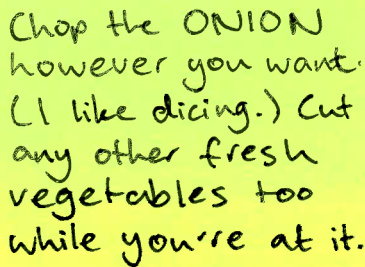 Chop the ONION
however you want.
(I like dicing.) Cut
any other fresh
vegetables too
while you're at it.